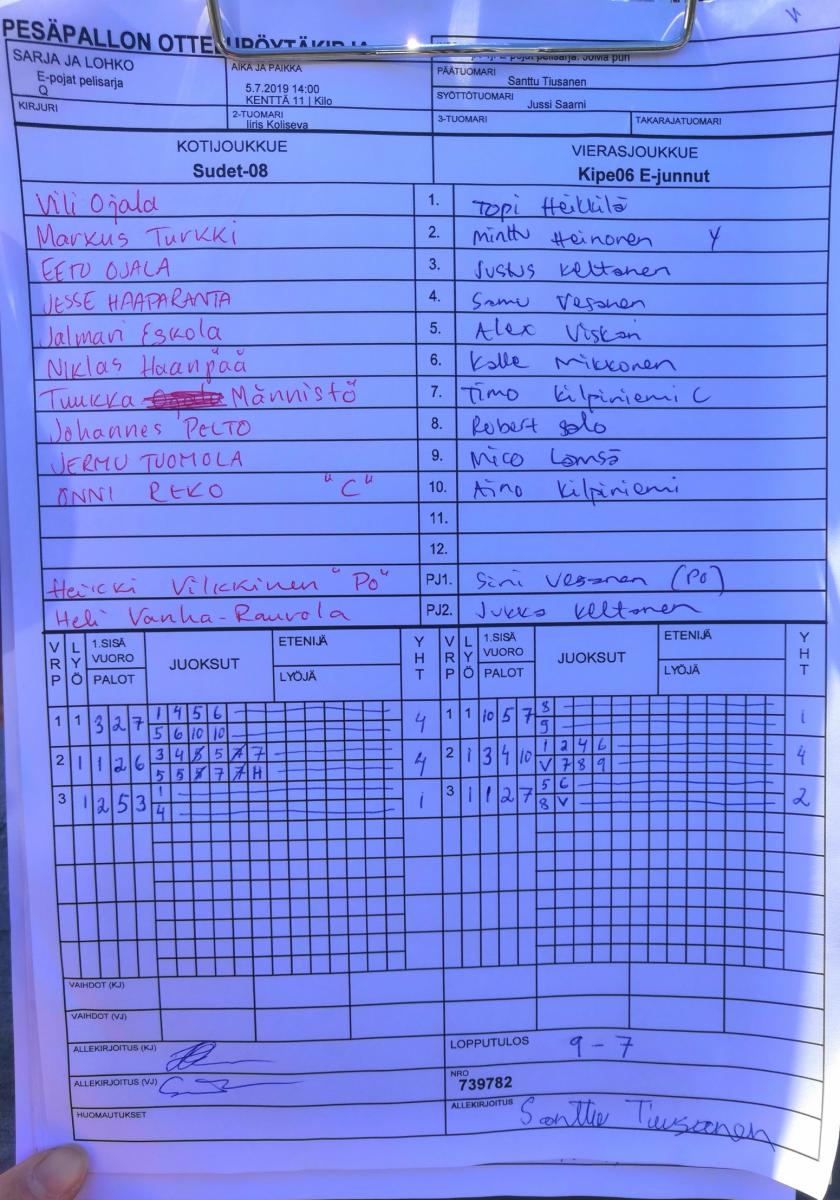 PESÄPALLON OTTELUPÖYTÄKIRJA
SARJA JA LOHKO
E-pojat pelisarja
Q
AIKA JA PAIKKA
5.7.2019 14:00
KENTTÄ 11 | Kilo
PÄÄTUOMARI
Santtu Tiusanen
SYÖTTÖTUOMARI
Jussi Saarni
KIRJURI
2-TUOMARI
Iiris Koliseva
3-TUOMARI
TAKARAJATUOMARI
KOTIJOUKKUE
Sudet-08
VIERASJOUKKUE
Kipe06 E-junnut
Vili Ojala 1. Topi Heikkilä
Markus Turkki 2. Minttu Heinonen Y
EETU OJALA 3. Justus Keltanen
JESSE HAAPARANTA 4. Samu Vesanen
Jalmari Eskola 5. Alex Viskari
Niklas Haanpää 6. Kalle Mikkonen
Tuukka Männistö 7. Timo Kilpiniemi C
Johannes PELTO 8. Robert Salo
JERMU TUOMOLA 9. Mico Lamsä
ONNI REKO "C" 10. Aino Kilpiniemi
11.
12.
Heikki Vilkkinen "PO" PJ1. Sini Vesanen (PO)
Heli Vanha-Rauvola PJ2. Jukka Keltanen
VRP LYÖ 1.SISÄ VUORO PALOT JUOKSUT ETENIJÄ LYÖJÄ YHT VRP LYÖ 1.SISÄ VUORO PALOT JUOKSUT ETENIJÄ LYÖJÄ YHT
1 1 3 2 7 1 4 5 6 4 1 1 10 5 7 8 1
5 6 10 10 9
2 1 1 2 6 3 4 8 5 7 7 4 2 1 3 4 10 1 2 4 6 4
5 5 8 7 7 H V 7 8 9
3 1 2 5 3 1 1 3 1 1 2 7 5 6 2
4 8 V
VAIHDOT (KJ)
VAIHDOT (VJ)
ALLEKIRJOITUS (KJ)
LOPPUTULOS 9 - 7
ALLEKIRJOITUS (VJ)
NRO
739782
HUOMAUTUKSET
ALLEKIRJOITUS Santtu Tiusanen